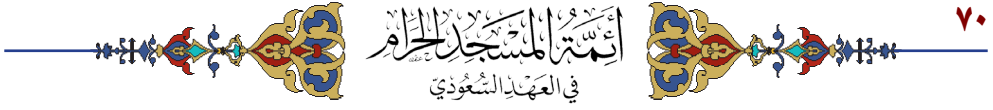 ٧٠
أَئِمَّةُ المَسْجِدِ الحَرَامِ
فِي العَهْدِ السُّعُودِيّ